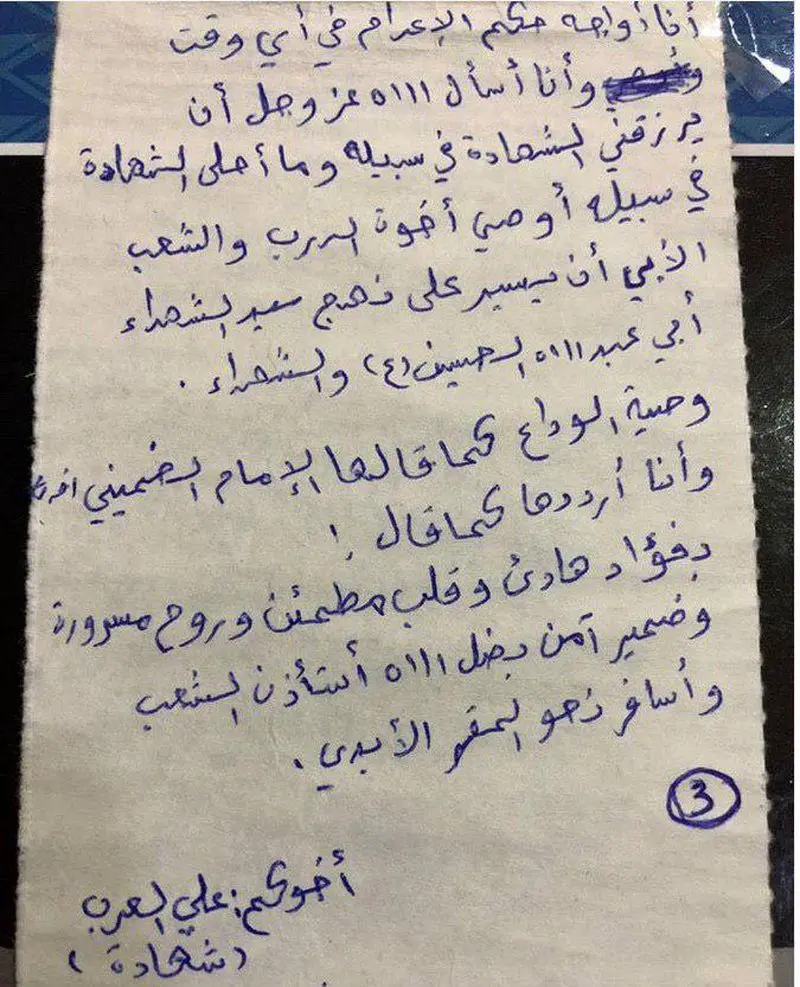 أنا أواجه حكم الإعدام في أي وقت
وأنا أسأل الله عز وجل أن
يرزقني الشهادة في سبيله وما أحلى الشهادة
في سبيله أوصي أخوة الدرب والشعب
الأبي أن يسير على نهج سيد الشهداء
أبي عبد الله الحسين (ع) والشهداء .
وصية الوداع كما قالها الإمام الخميني
وأنا أرددها كما قال :
بفؤاد هادئ وقلب مطمئن وروح مسرورة
وضمير آمن بضل الله أستأذن الشعب
وأسافر نحو المقر الأبدي .
3
أخوكم : علي العرب
(شهادة)